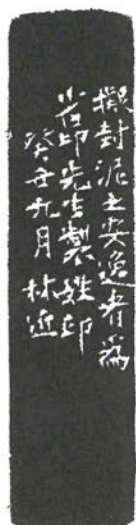 擬封泥之安逸者為
苦印先生製姓印
癸丑九月 林近